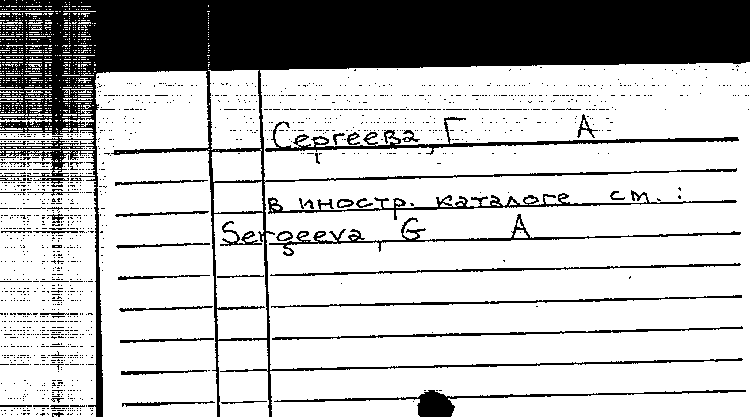 Сергеева, Г А
в иностр. каталоге см.:
Sergeeva, G A